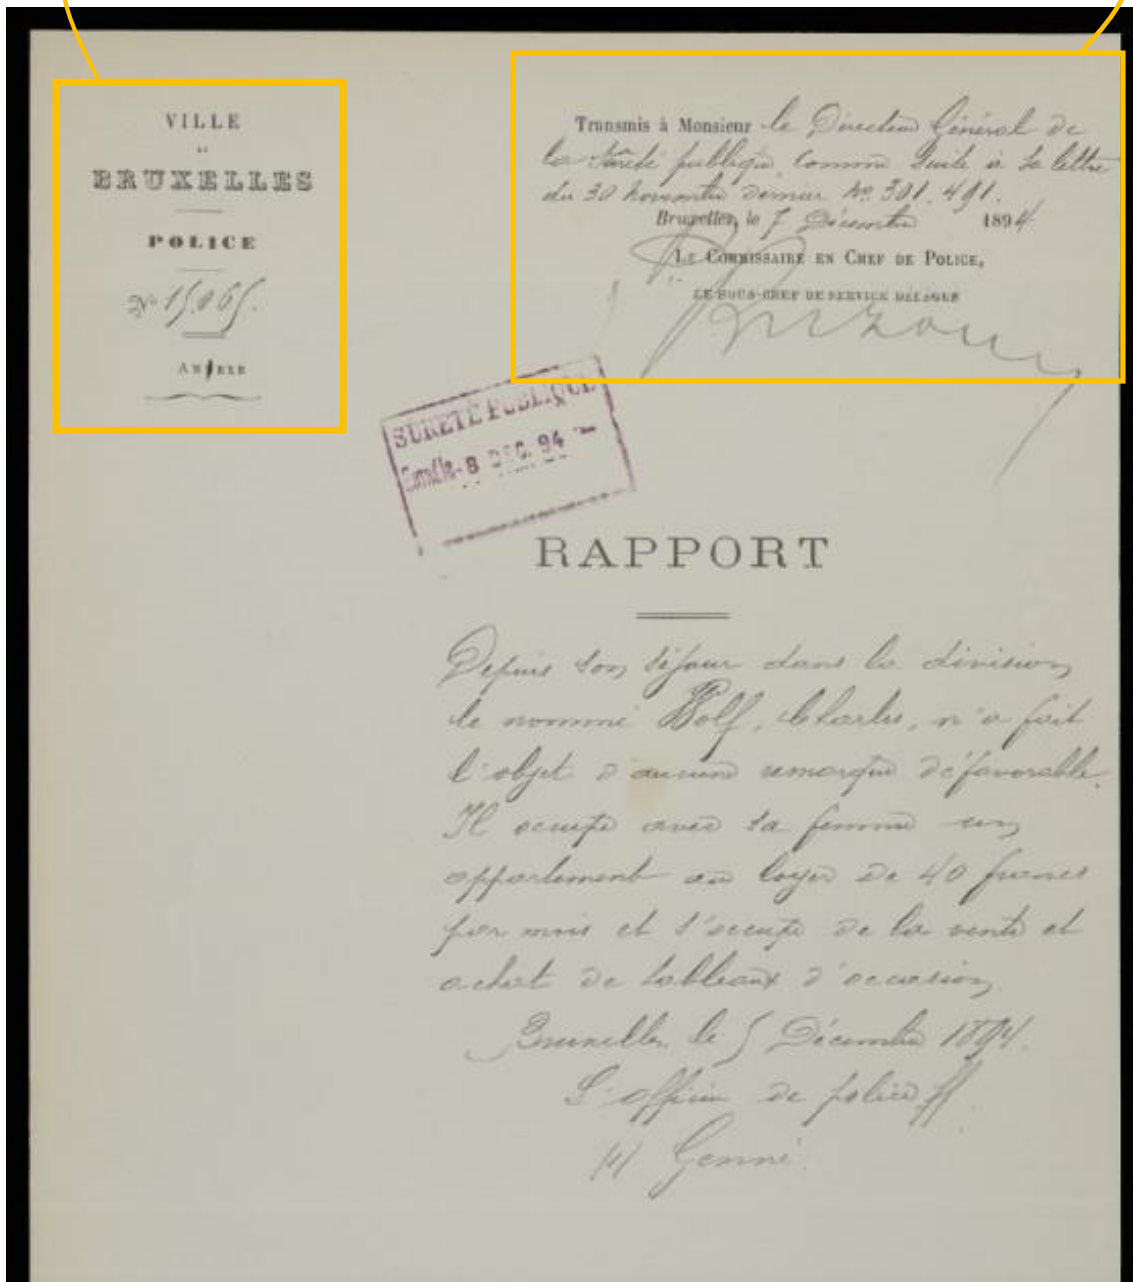 VILLE
DE
BRUXELLES
POLICE
N° 15.065.
ANNEXE
Transmis à Monsieur le Directeur Général de
la Sûreté publique, comme suite à sa lettre
du 30 novembre dernier N° 301.491.
Bruxelles, le 7 Décembre 1894
LE COMMISSAIRE EN CHEF DE POLICE,
LE SOUS-CHEF DE SERVICE DÉLÉGUÉ
SURETÉ PUBLIQUE
Entré le 8 DEC. 94
RAPPORT
Depuis son séjour dans la division
le nommé Charles, n'a fait
l'objet d'aucune remarque défavorable.
Il occupe avec sa femme un
appartement au loyer de 40 francs
par mois et s'occupe de la vente et
achat de tableaux d'occasion.
Bruxelles le 5 Décembre 1894.
L'officier de police ff.